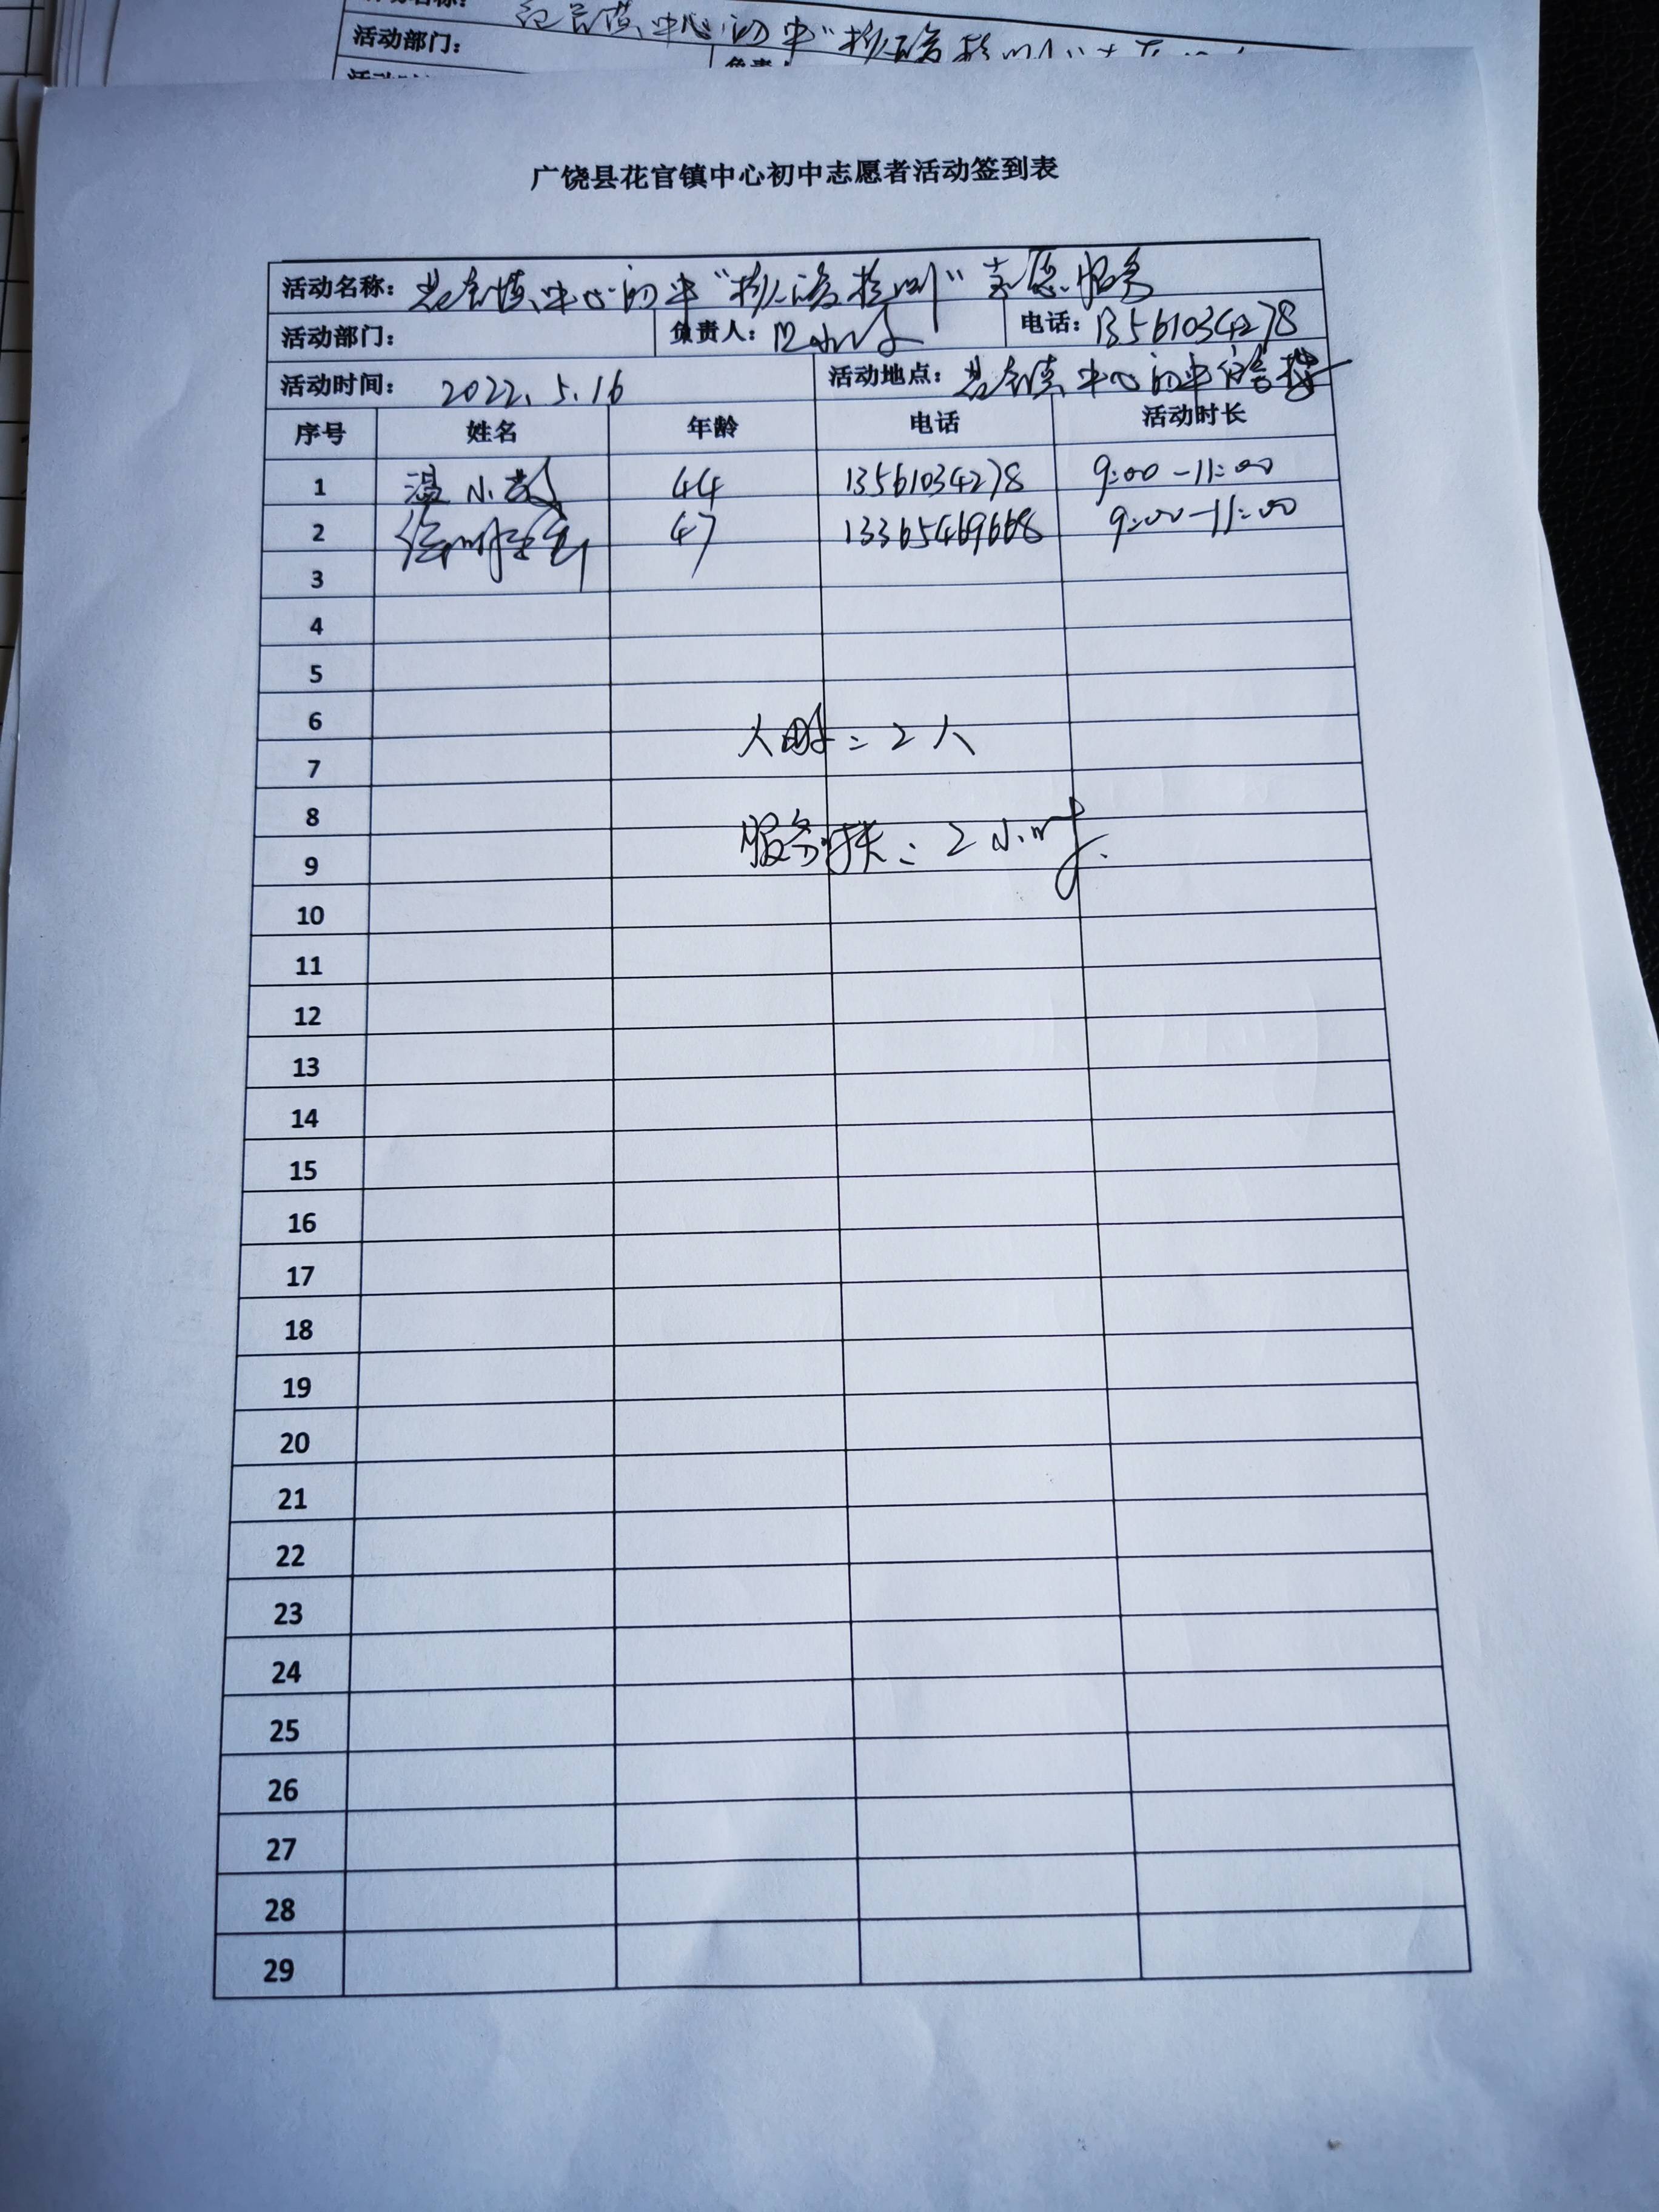 活动部门：
花官镇中心初中"核酸检测
广饶县花官镇中心初中志愿者活动签到表
活动名称：花官镇中心初中"核酸检测"志愿服务
活动部门： 负责人： 电话：13561034278
活动时间：2022.5.16 活动地点：花官镇中心初中宿舍楼
序号 姓名 年龄 电话 活动时长
1 温小 44 13561034278 9:00-11:00
2 徐 47 13365469668 9:00-11:00
3
4
5
6
人 : 2人
7
8
服务时长: 2小时.
9
10
11
12
13
14
15
16
17
18
19
20
21
22
23
24
25
26
27
28
29